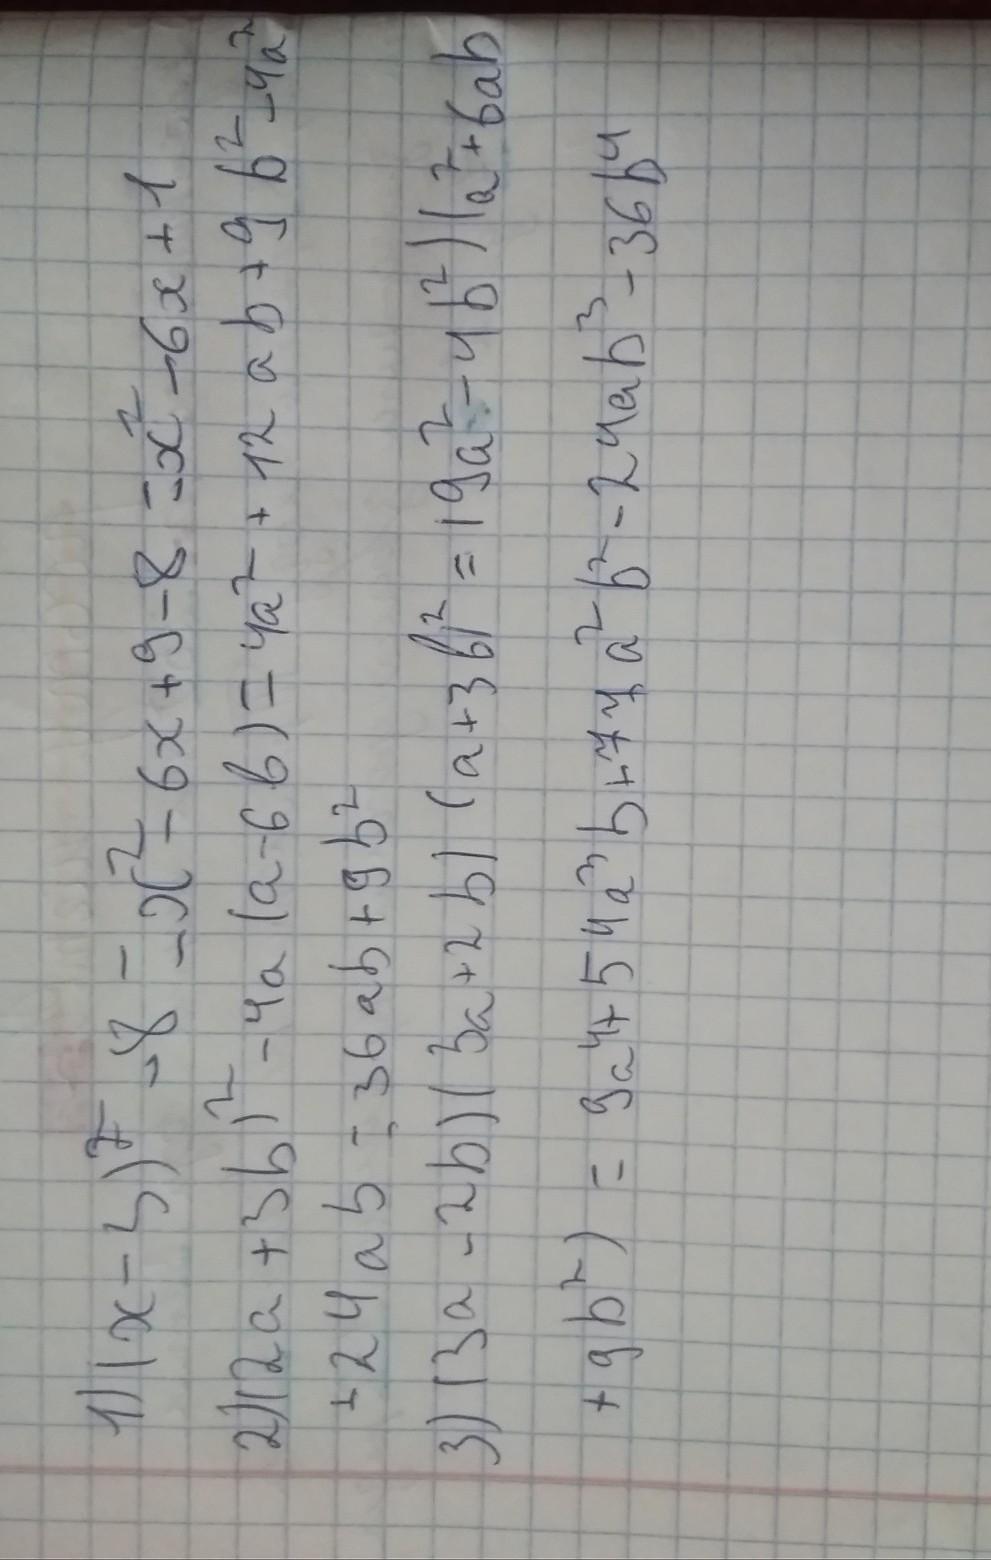 1) (x-3)² -8 = -x² - 6x + 9 - 8 = x² - 6x + 1
2) (2a + 3b)² - 4a (a - 6b) = 4a² + 12ab + 9b² - 4a²
+ 24ab = 36ab + 9b²
3) (3a - 2b)(3a + 2b) (a + 3b)² = (9a² - 4b²) (a² + 6ab
+ 9b²) = 9a⁴ + 54a³b + 77a²b² - 24ab³ - 36b⁴